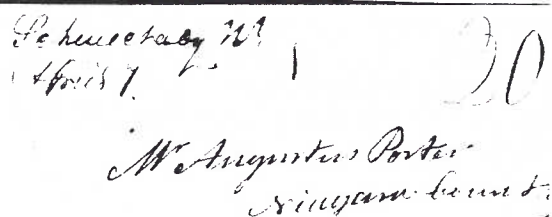 Schenectady NY
April 7
20
Mr Augustus Porter
Niagara County